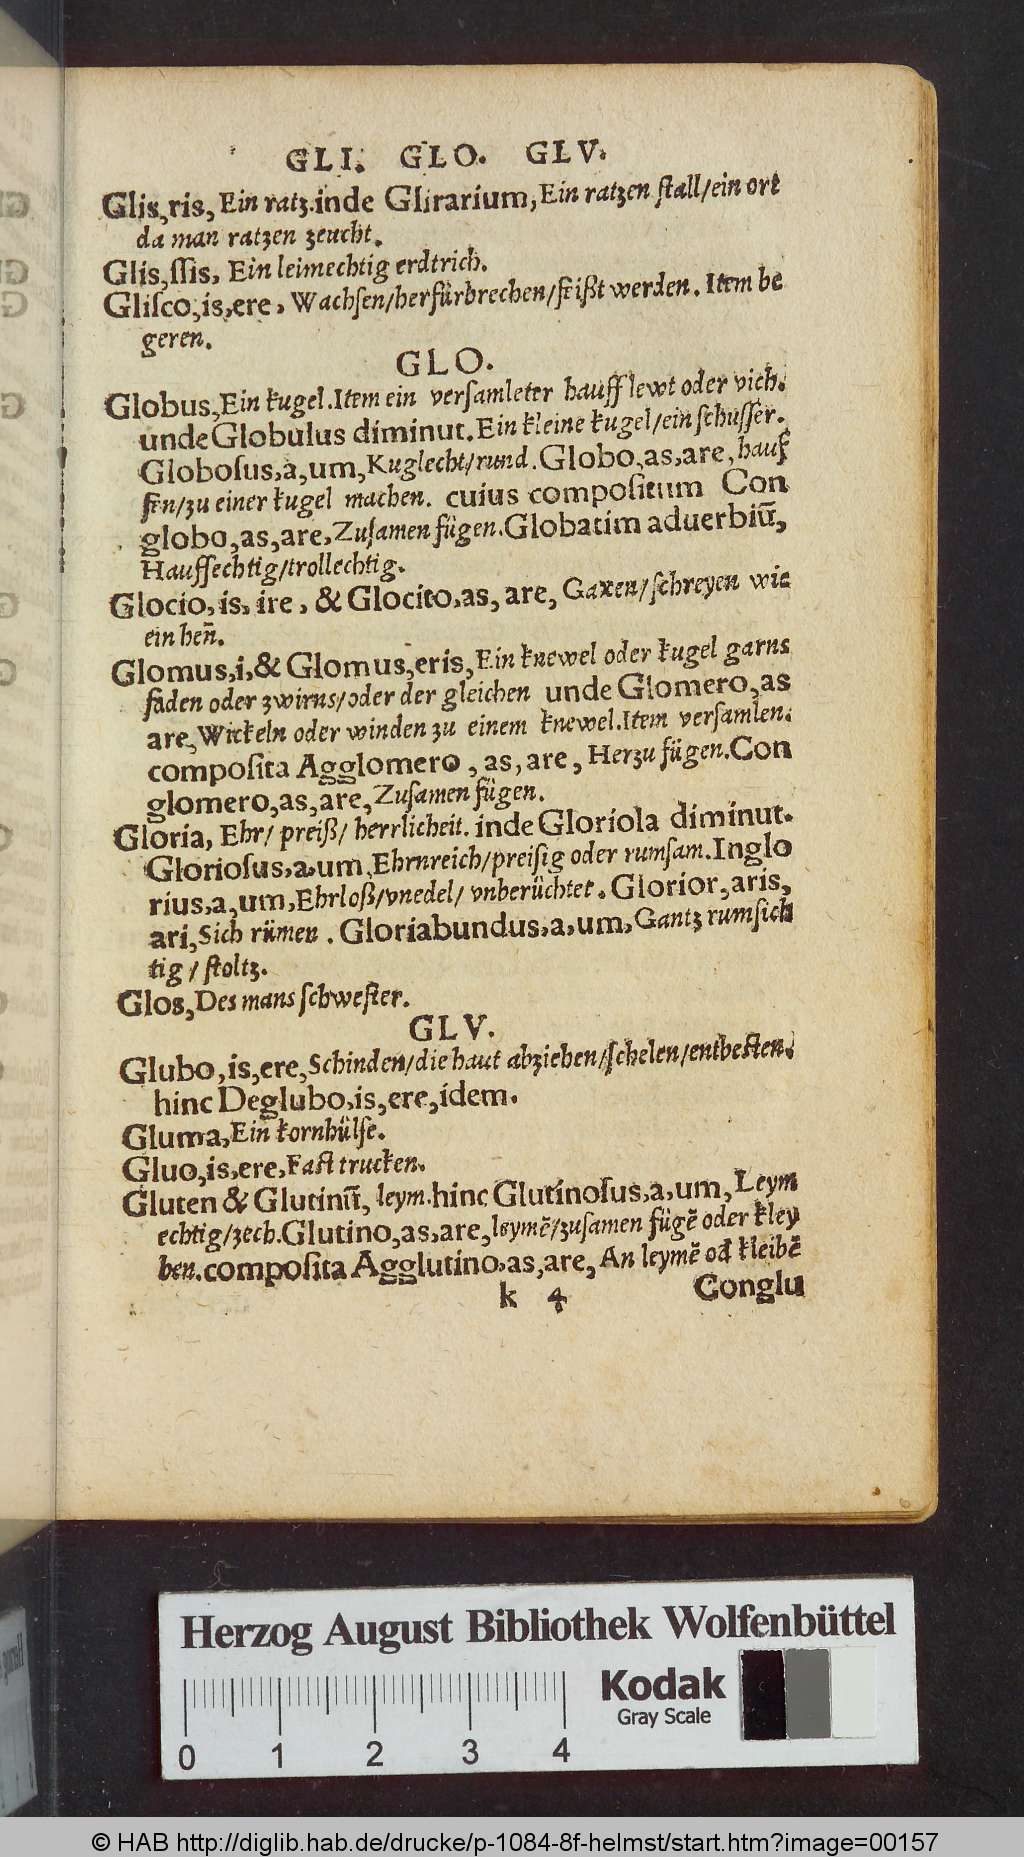 GLI. GLO. GLV.
Glis,ris, Ein ratz.inde Glirarium, Ein ratzen ſtall/ein ort
da man ratzen zeucht.
Glis,ſſis, Ein leimechtig erdtrich.
Gliſco,is,ere, Wachſen/herfürbrechen/feißt werden. Item be
geren.
GLO.
Globus,Ein kugel.Item ein verſamleter hauff lewt oder vieh.
unde Globulus diminut.Ein kleine kugel/ein ſchuſſer.
Globoſus,a,um,Kuglecht/rund.Globo,as,are,hauf
fen/zu einer kugel machen. cuius compoſitum Con
globo,as,are,Zuſamen fügen.Globatim aduerbiū,
Hauffechtig/trollechtig.
Glocio,is,ire, & Glocito,as, are, Gaxen/ſchreyen wie
ein heñ.
Glomus,i,& Glomus,eris,Ein knewel oder kugel garns
faden oder zwirns/oder der gleichen unde Glomero,as
are,Wickeln oder winden zu einem knewel.Item verſamlen.
compoſita Agglomero, as, are, Herzu fügen.Con
glomero,as,are,Zuſamen fügen.
Gloria, Ehr/ preiß/ herrlicheit. inde Gloriola diminut.
Glorioſus,a,um,Ehrnreich/preiſig oder rumſam.Inglo
rius,a,um,Ehrloß/vnedel/ vnberüchtet. Glorior,aris,
ari,Sich rümen. Gloriabundus,a,um,Gantz rumſich
tig/ ſtoltz.
Glos,Des mans ſchweſter.
GLV.
Glubo,is,ere,Schinden/die haut abziehen/ſchelen/entheſten.
hinc Deglubo,is,ere,idem.
Gluma,Ein kornhülſe.
Gluo,is,ere,Faſt trucken.
Gluten & Glutinū, leym.hinc Glutinoſus,a,um,Leym
echtig/zech.Glutino,as,are,leymē/zuſamen fügē oder kley
ben.compoſita Agglutino,as,are, An leymē od kleibē
k 4 Conglu
Herzog August Bibliothek Wolfenbüttel
Kodak
Gray Scale
0 1 2 3 4
© HAB http://diglib.hab.de/drucke/p-1084-8f-helmst/start.htm?image=00157